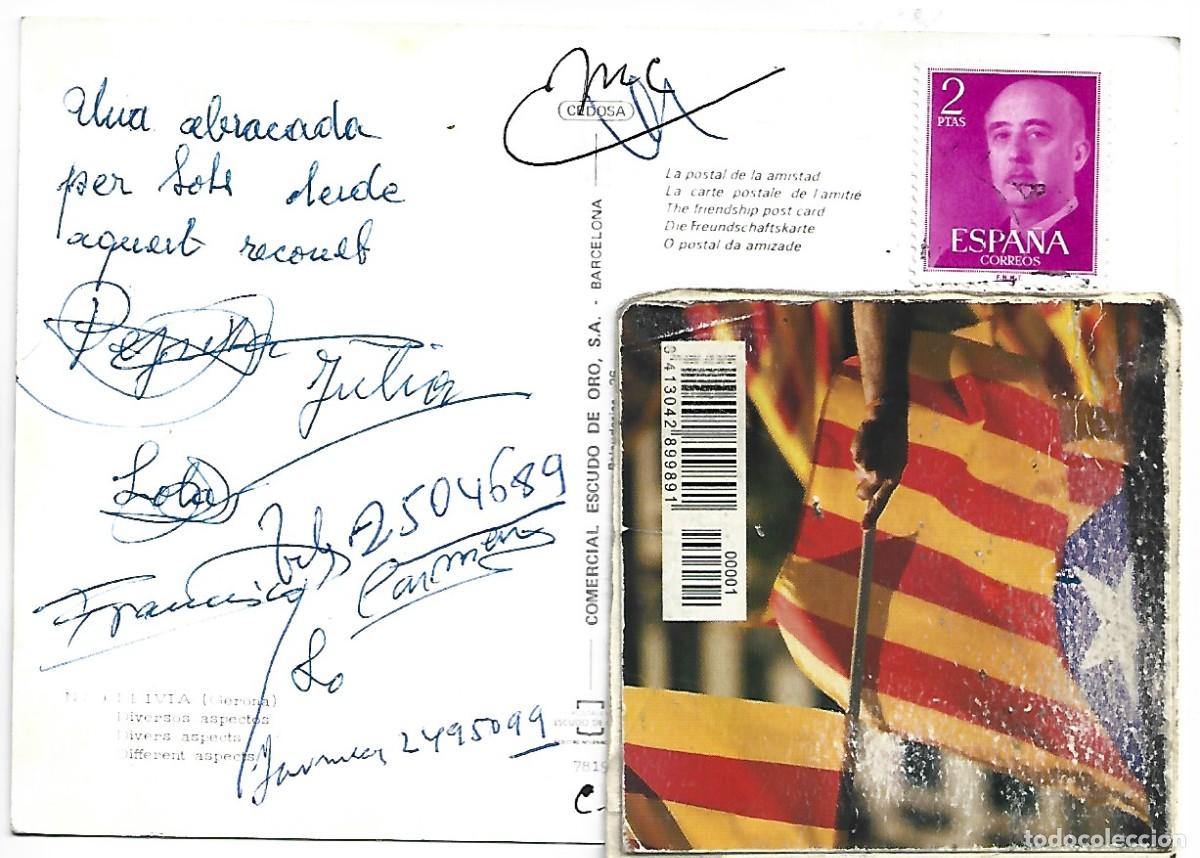 Una abracada
per tots desde
aquest reconet
Pepita
Julia
Lola
2504689
Francisco
Carmen
Lo
2495099
LLIVIA (Gerona)
Diversos aspectos
Divers aspects
Different aspects
CEDOSA
La postal de la amistad
La carte postale de l'amitié
The friendship post card
Die Freundschaftskarte
O postal da amizade
COMERCIAL ESCUDO DE ORO, S.A. - BARCELONA
7819
C-
2
PTAS
ESPAÑA
CORREOS
F.N.M.T
0 413042 899891
00001
todocoleccion